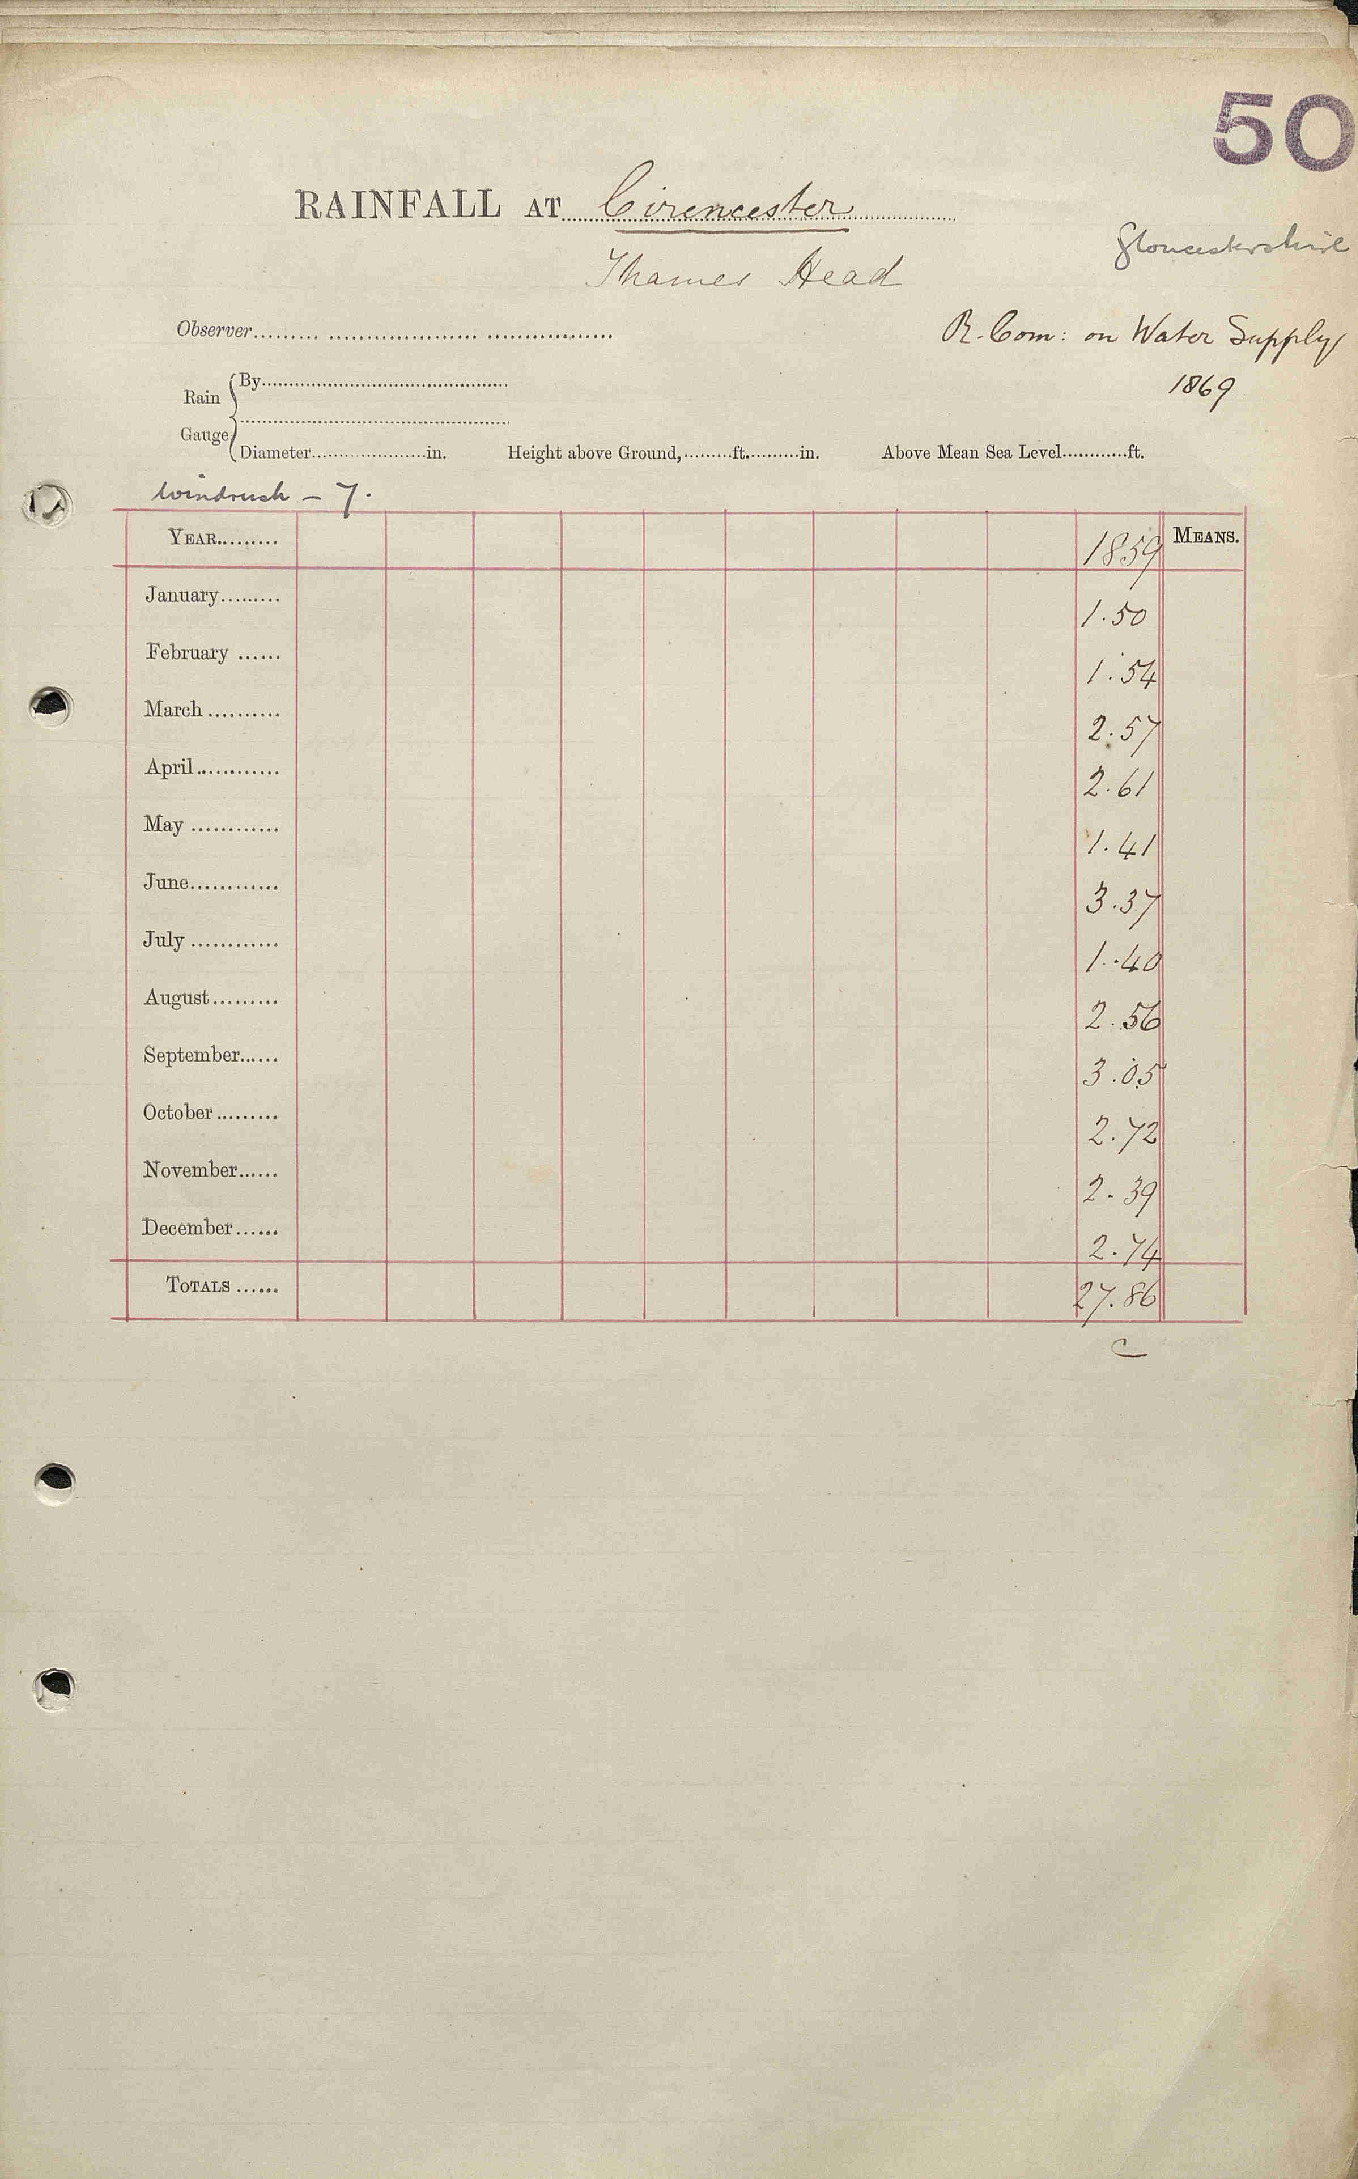 50
RAINFALL AT Cirencester
Gloucestershire
Thames Head
Observer
R. Com: on Water Supply
1869
Rain Gauge
By
Diameter in. Height above Ground, ft. in. Above Mean Sea Level ft.
Windrush - 7.
YEAR 1859 MEANS.
January 1.50
February 1.54
March 2.57
April 2.61
May 1.41
June 3.37
July 1.40
August 2.56
September 3.05
October 2.72
November 2.39
December 2.74
TOTALS 27.86
C